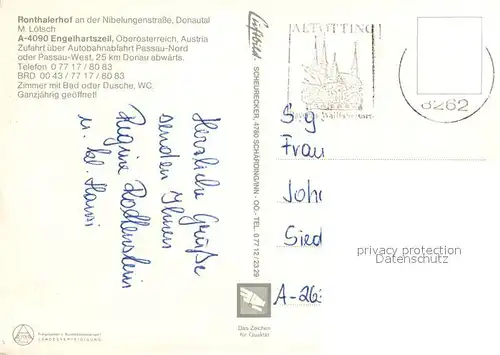 Ronthalerhof an der Nibelungenstraße, Donautal
M. Lötsch
A-4090 Engelhartszell, Oberösterreich, Austria
Zufahrt über Autobahnabfahrt Passau-Nord
oder Passau-West, 25 km Donau abwärts.
Telefon 0 77 17 / 80 83
BRD 00 43 / 77 17 / 80 83
Zimmer mit Bad oder Dusche, WC.
Ganzjährig geöffnet!
Herzliche Grüße
senden Ihnen
Regina Rodlenstein
u. kl. Hansi
Luftbild
SCHEURECKER, 4780 SCHÄRDING/INN - OÖ. - TEL. 0 77 12 / 23 29
Das Zeichen
für Qualität
LANDESVERTEIDIGUNG
ALTÖTTING
8262
Frau
Joh
Sied
A-26
privacy protection
Datenschutz